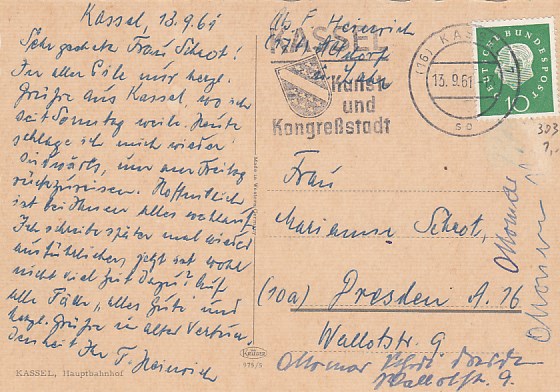 Kassel, 13.9.61
Sehr geehrte Frau Schrot!
In aller Eile nur herzl.
Grüße aus Kassel, wo ich
seit Sonntag weile. Heute
schlage ich mich wieder
südwärts, um am Freitag
zurückzureisen. Hoffentlich
ist bei Ihnen alles wohlauf.
Ich schreibe später mal wieder
ausführlicher, jetzt ist wohl
nicht viel Zeit dazu! Auf
alle Fälle „alles Gute" und
herzl. Grüße in alter Verbun-
denheit Ihr F. Heinrich
KASSEL, Hauptbahnhof
Krüger
979/5
Made in Western Germany
Abs. F. Heinrich
KASSEL
Kunst
und
Kongreßstadt
(16) KASSEL
13.9.61
so
DEUTSCHE BUNDESPOST
10
303
Frau
Marianne Schrot,
(10a) Dresden A. 16
Wallotstr. 9
Ottomar
Ottomar
Ottomar Dresden
Wallotstr. 9